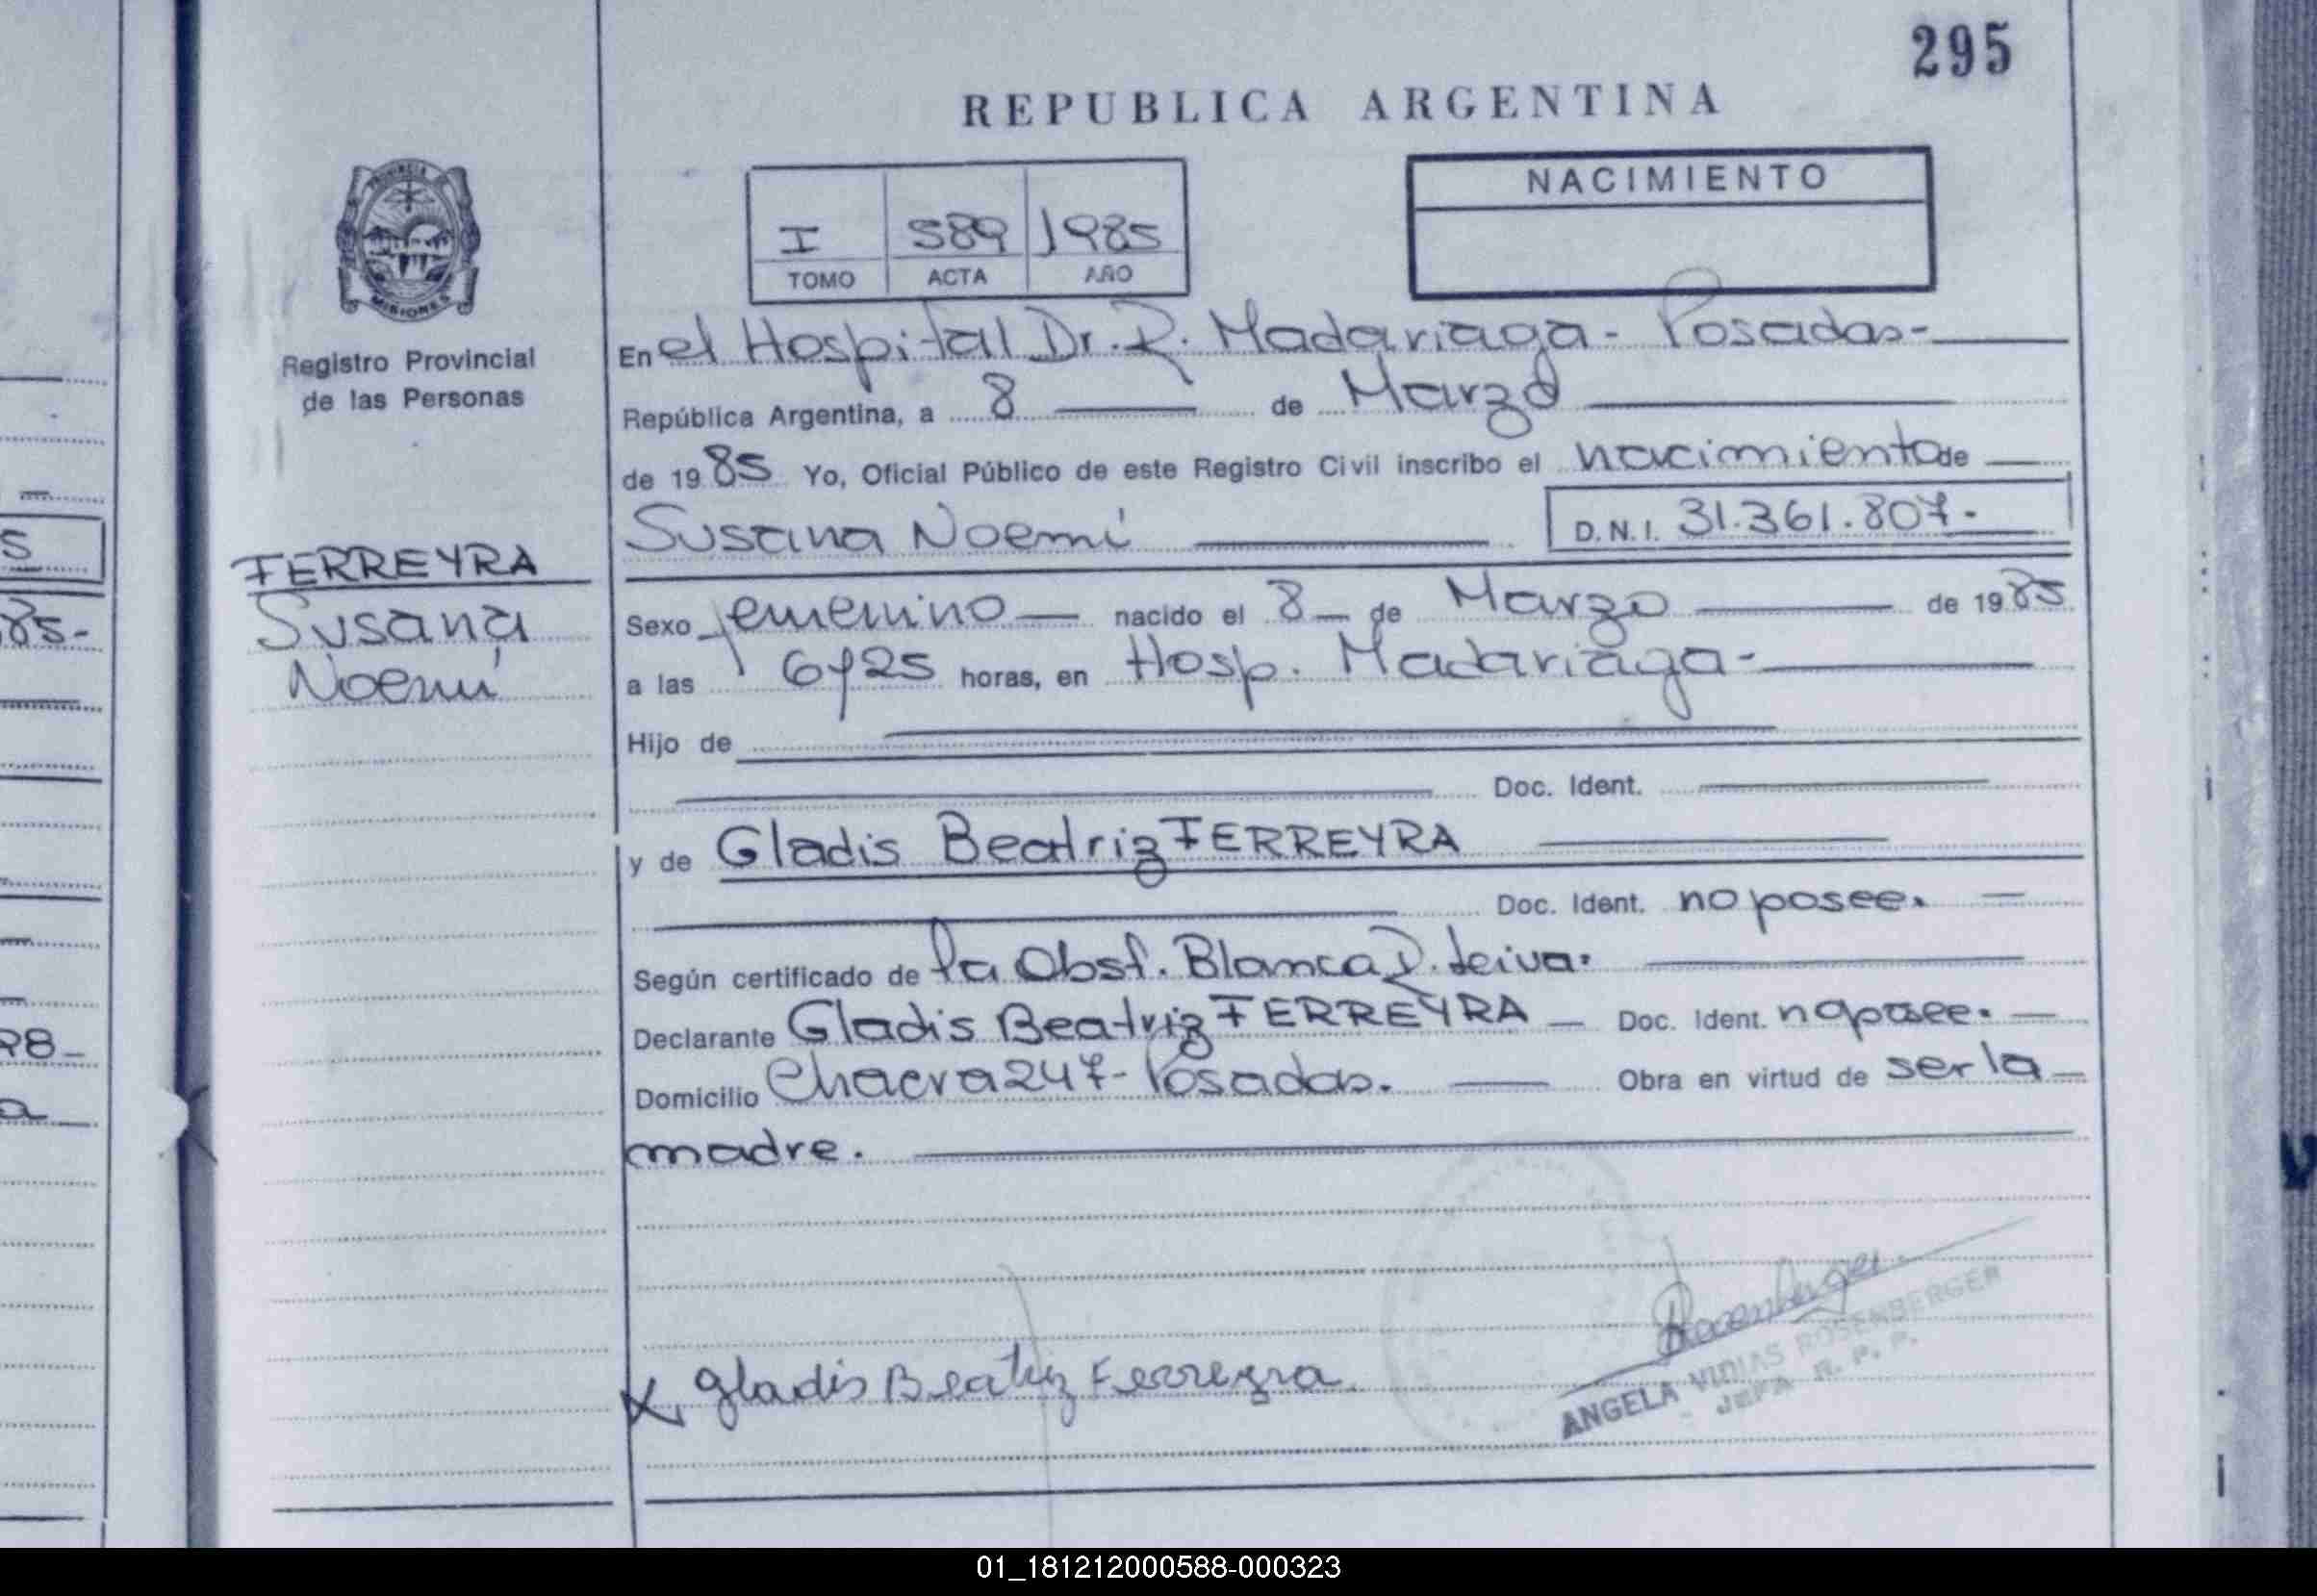 295
REPUBLICA ARGENTINA
I 589 1985
TOMO ACTA AÑO
NACIMIENTO
PROVINCIA
MISIONES
Registro Provincial
de las Personas
FERREYRA
Susana
Noemí
En el Hospital Dr. R. Madariaga - Posadas -
República Argentina, a 8 de Marzo
de 1985 Yo, Oficial Público de este Registro Civil inscribo el nacimiento de
Susana Noemí D.N.I. 31.361.807.-
Sexo femenino nacido el 8 de Marzo de 1985
a las 6y25 horas, en Hosp. Madariaga -
Hijo de
Doc. Ident.
y de Gladis Beatriz FERREYRA
Doc. Ident. no posee.
Según certificado de la Obst. Blanca D. Leiva.
Declarante Gladis Beatriz FERREYRA Doc. Ident. no posee.
Domicilio Chacra 247 - Posadas. Obra en virtud de ser la
madre.
X Gladis Beatriz Ferreyra
ANGELA VIDIAS ROSENBERGER
JEFA R. P. P.
01_181212000588-000323